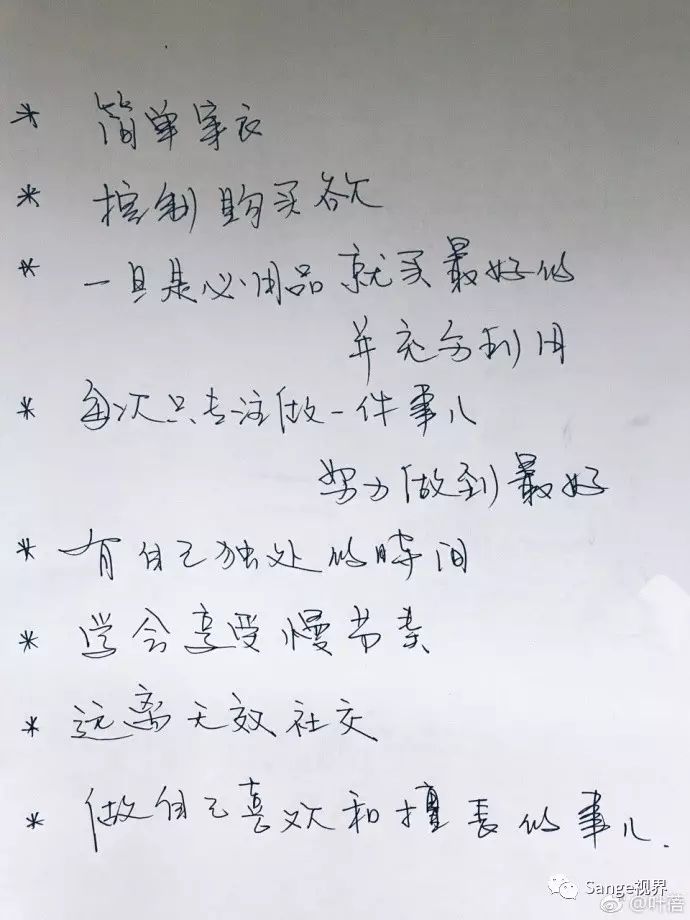 * 简单穿衣
* 控制购买欲
* 一旦是必用品就买最好的
并充分利用
* 每次只专注做一件事儿
努力做到最好
* 有自己独处的时间
* 学会享受慢节奏
* 远离无效社交
* 做自己喜欢和擅长的事儿.
Sange视界
@叶蓓